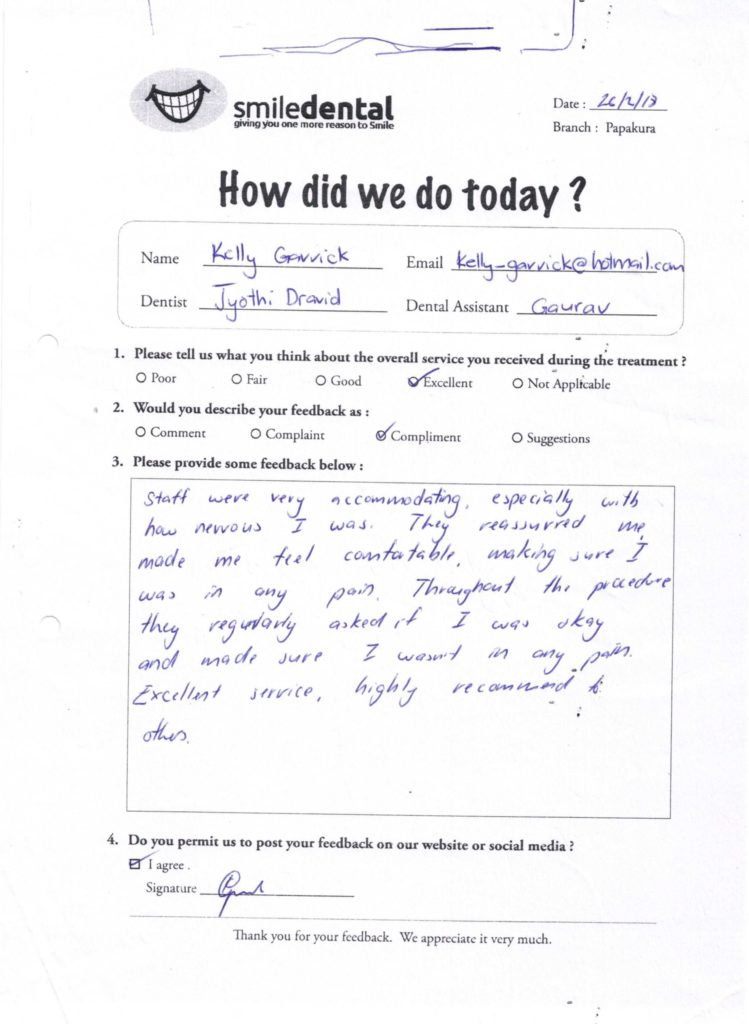 smiledental
giving you one more reason to Smile
Date : 26/2/18
Branch : Papakura
How did we do today ?
Name Kelly Garvick Email kelly-garvick@hotmail.com
Dentist Jyothi Dravid Dental Assistant Gaurav
1. Please tell us what you think about the overall service you received during the treatment ?
Poor Fair Good Excellent Not Applicable
2. Would you describe your feedback as :
Comment Complaint Compliment Suggestions
3. Please provide some feedback below :
Staff were very accommodating, especially with
how nervous I was. They reassurred me
made me feel comfortable, making sure I
was in any pain. Throughout the procedure
they regularly asked if I was okay
and made sure I wasn't in any pain.
Excellent service, highly recommend to
others.
4. Do you permit us to post your feedback on our website or social media ?
I agree .
Signature
Thank you for your feedback. We appreciate it very much.